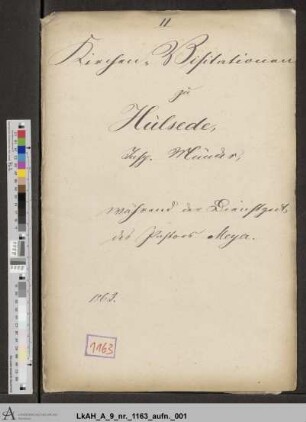 11.
Kirchen-Visitationen
zu
Hülsede,
Insp. Münder,
während der Dienstzeit
des Pastors Meya.
1862.
1163
LkAH_A_9_nr._1163_aufn._001